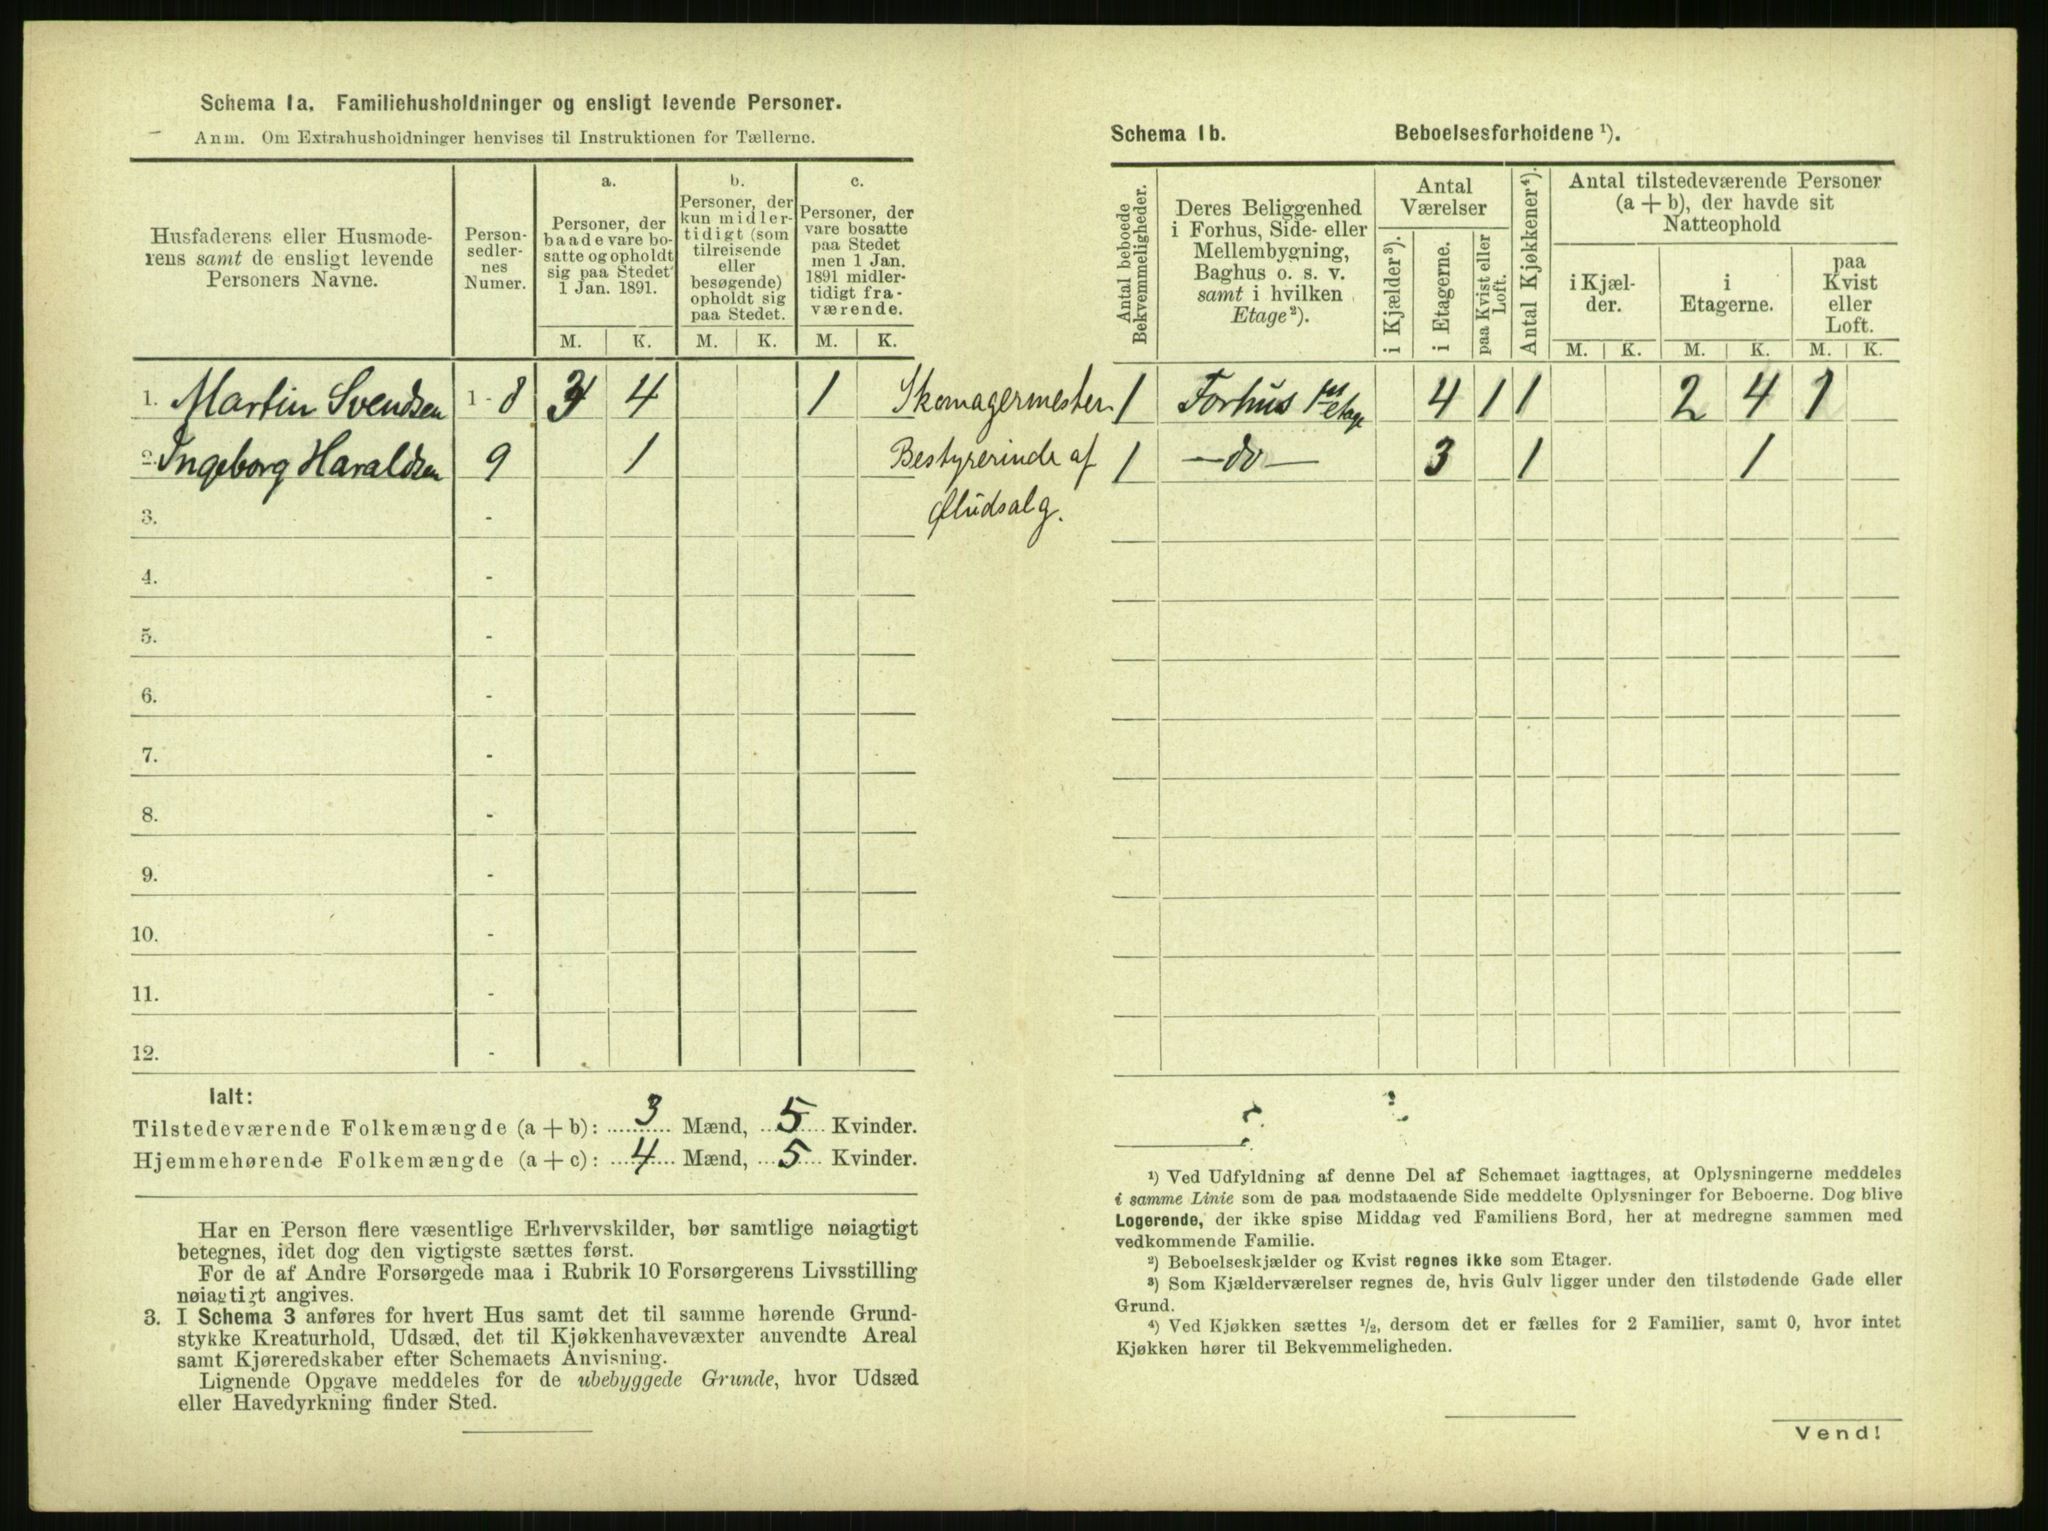 Schema 1a. Familiehusholdninger og ensligt levende Personer.
Anm. Om Extrahusholdninger henvises til Instruktionen for Tællerne.
Husfaderens eller Husmode-
rens samt de ensligt levende
Personers Navne.
Person-
sedler-
nes
Numer.
a.
Personer, der
baade vare bo-
satte og opholdt
sig paa Stedet
1 Jan. 1891.
b.
Personer, der
kun midler-
tidigt (som
tilreisende
eller
besøgende)
opholdt sig
paa Stedet.
c.
Personer, der
vare bosatte
paa Stedet
men 1 Jan.
1891 midler-
tidigt fra-
værende.
M. K. M. K. M. K.
1. Martin Svendsen 1 - 8 3 4 1 Skomagermester
2. Ingeborg Haraldsen 9 1 Bestyrerinde af
Øludsalg.
3. -
4. -
5. -
6. -
7. -
8. -
9. -
10. -
11. -
12. -
Ialt:
Tilstedeværende Folkemængde (a + b): 3 Mænd, 5 Kvinder.
Hjemmehørende Folkemængde (a + c): 4 Mænd, 5 Kvinder.
Har en Person flere væsentlige Erhvervskilder, bør samtlige nøiagtigt
betegnes, idet dog den vigtigste sættes først.
For de af Andre Forsørgede maa i Rubrik 10 Forsørgerens Livsstilling
nøiagtigt angives.
3. I Schema 3 anføres for hvert Hus samt det til samme hørende Grund-
stykke Kreaturhold, Udsæd, det til Kjøkkenhavevæxter anvendte Areal
samt Kjøreredskaber efter Schemaets Anvisning.
Lignende Opgave meddeles for de ubebyggede Grunde, hvor Udsæd
eller Havedyrkning finder Sted.
Schema 1b. Beboelsesforholdene ¹).
Antal beboede
Bekvemmeligheder.
Deres Beliggenhed
i Forhus, Side- eller
Mellembygning,
Baghus o. s. v.
samt i hvilken
Etage²).
Antal
Værelser
i Kjælder³).
i Etagerne.
paa Kvist eller
Loft.
Antal Kjøkkener⁴).
Antal tilstedeværende Personer
(a + b), der havde sit
Natteophold
i Kjæl-
der.
i
Etagerne.
paa
Kvist
eller
Loft.
M. K. M. K. M. K.
1 Forhus 1ste etage 4 1 1 2 4 1
1 — do — 3 1 1
¹) Ved Udfyldning af denne Del af Schemaet iagttages, at Oplysningerne meddeles
i samme Linie som de paa modstaaende Side meddelte Oplysninger for Beboerne. Dog blive
Logerende, der ikke spise Middag ved Familiens Bord, her at medregne sammen med
vedkommende Familie.
²) Beboelseskjælder og Kvist regnes ikke som Etager.
³) Som Kjælderværelser regnes de, hvis Gulv ligger under den tilstødende Gade eller
Grund.
⁴) Ved Kjøkken sættes ½, dersom det er fælles for 2 Familier, samt 0, hvor intet
Kjøkken hører til Bekvemmeligheden.
Vend!